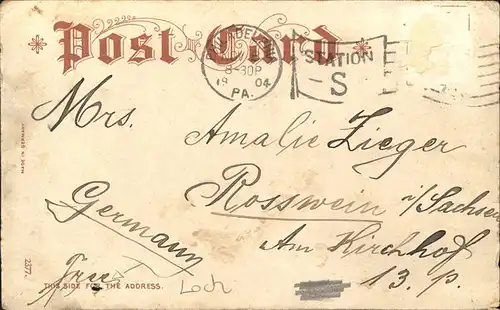 Post Card
8-30P
19 04
PA.
STATION
S
Mrs. Amalie Zieger
Rosswein i/Sachsen
Germany
Am Kirchhof
13. p.
MADE IN GERMANY
2377.
THIS SIDE FOR THE ADDRESS.